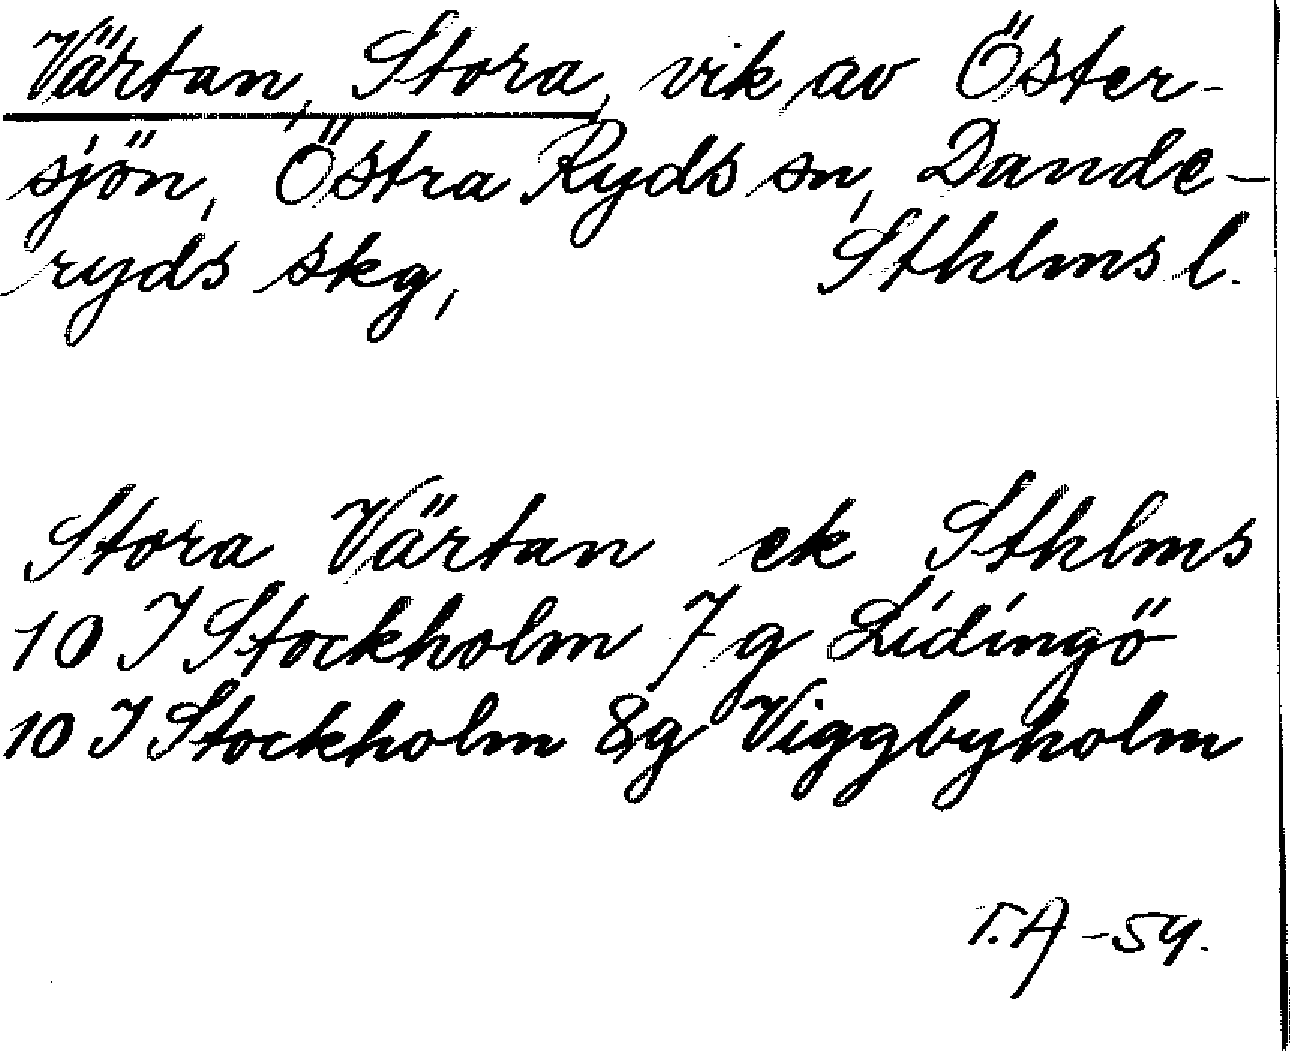 Värtan, Stora, vik av Öster-
sjön, Östra Ryds sn, Dande-
ryds skg, Sthlms l.
Stora Värtan ek Sthlms
10 I Stockholm 7 g Lidingö
10 I Stockholm 8g Viggbyholm
T.A -54.